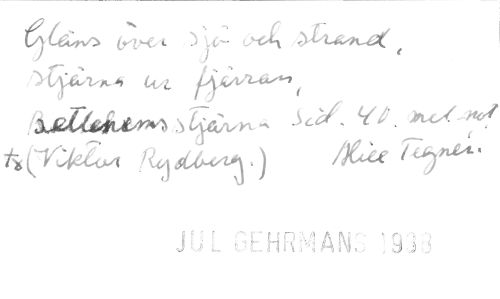 Gläns över sjö och strand,
stjärna ur fjärran,
Betlehems stjärna Sid. 40. mel. not
tx (Viktor Rydberg.) Alice Tegnér.
JUL GEHRMANS 1938